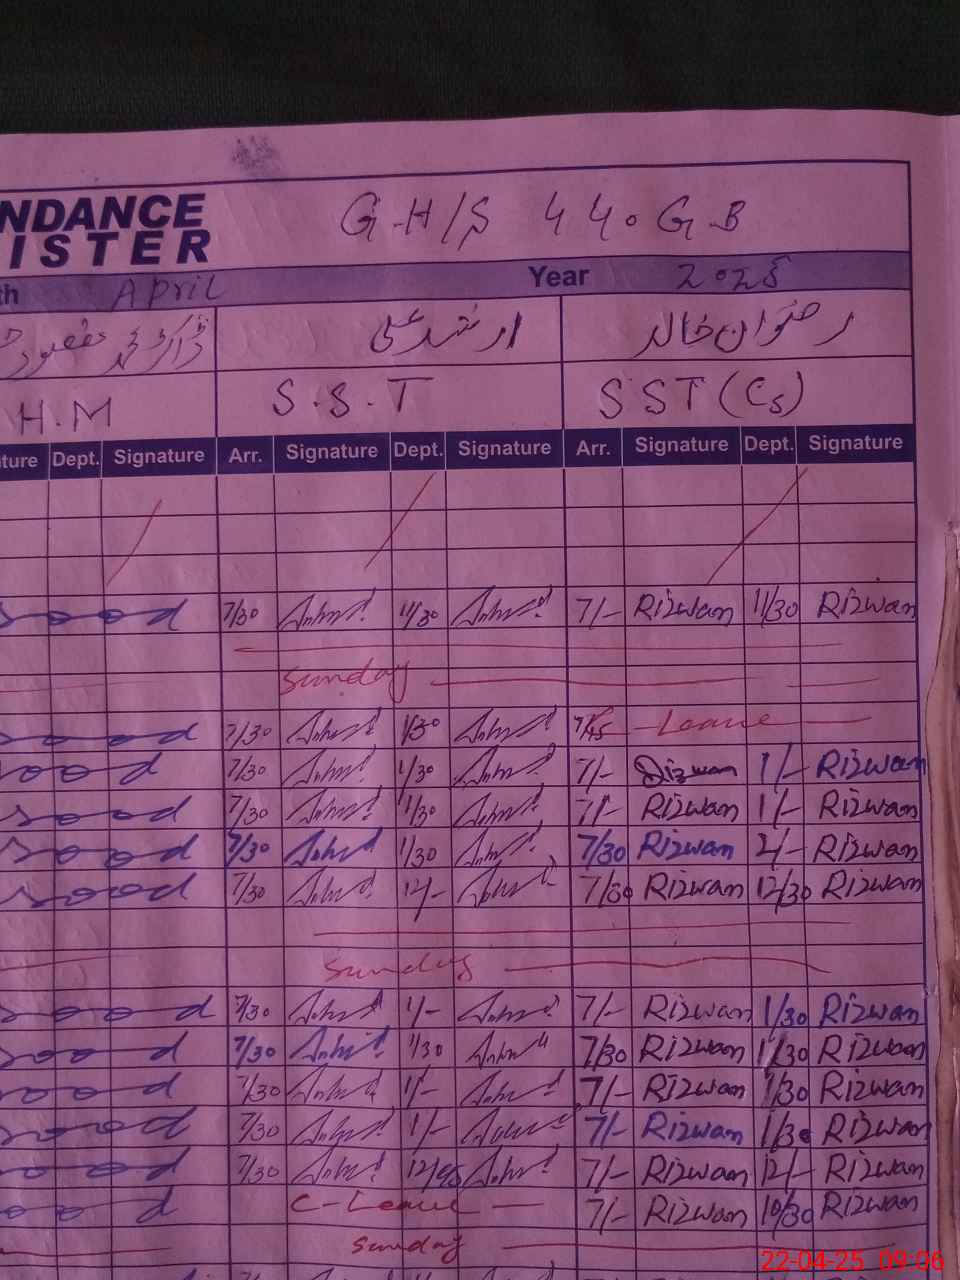 NDANCE G.H/S 440 G.B
ISTER
th April Year 2025
ارشد علی رضوان خالد
H.M S.S.T SST (Cs)
ture Dept. Signature Arr. Signature Dept. Signature Arr. Signature Dept. Signature
sood 7/30 11/30 7/- Rizwan 11/30 Rizwan
Sunday
sood 7/30 1/30 7/45 Leave
ood 7/30 1/30 7/- Rizwan 1/- Rizwan
sood 7/30 1/30 7/- Rizwan 1/- Rizwan
sood 7/30 1/30 7/30 Rizwan 2/- Rizwan
sood 7/30 12/- 7/30 Rizwan 12/30 Rizwan
Sunday
sood 7/30 1/- 7/- Rizwan 1/30 Rizwan
sood 7/30 1/30 7/30 Rizwan 1/30 Rizwan
ood 7/30 1/- 7/- Rizwan 1/30 Rizwan
sood 7/30 1/- 7/- Rizwan 1/30 Rizwan
ood 7/30 12/ 7/- Rizwan 12/- Rizwan
ood C-Leave 7/- Rizwan 10/30 Rizwan
Sunday
22-04-25 09:06